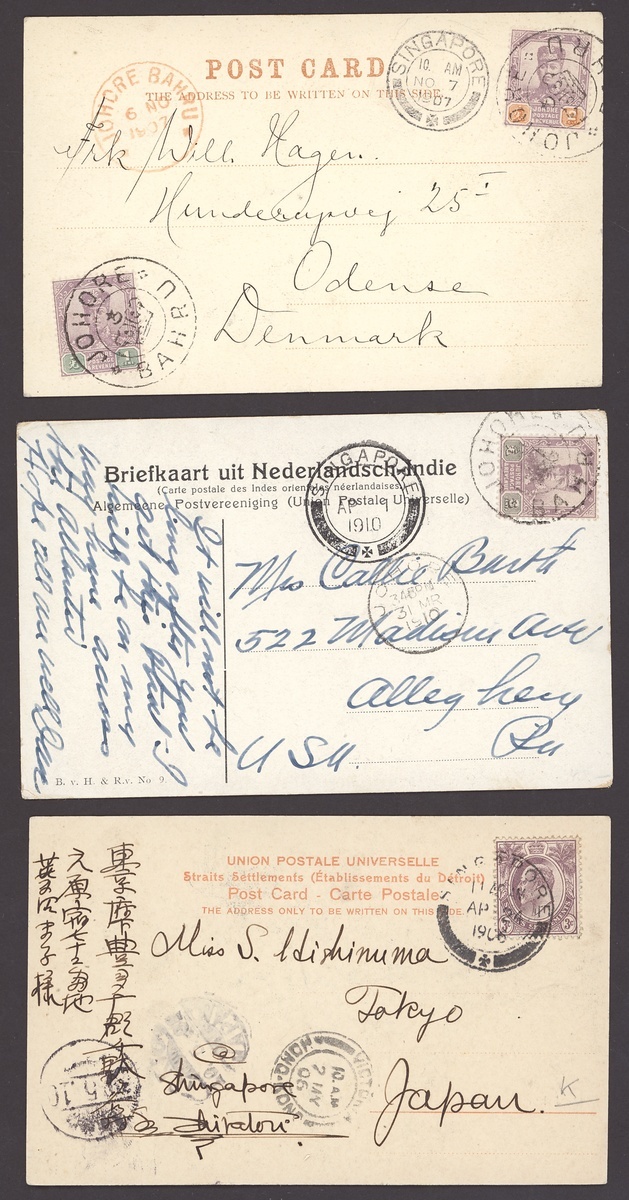 POST CARD
THE ADDRESS TO BE WRITTEN ON THIS SIDE.
JOHORE BAHRU
6 NO
1907
SINGAPORE
10 AM
NO 7
1907
JOHORE BAHRU
JOHORE
POSTAGE
& REVENUE
Frk Will. Hagen.
Hunderupvej 25 I
Odense
Denmark
JOHORE BAHRU
Briefkaart uit Nederlandsch-Indie
(Carte postale des Indes orientales néerlandaises.)
Algemeene Postvereeniging (Union Postale Universelle)
SINGAPORE
AP 1
1910
JOHORE BAHRU
It will not be
long after you
get this that I
will be on my
way home across
the Atlantic
Hope all are well
Mrs Callie Barth
522 Madison Ave
Allegheny
Pa
U S A
31 MR
1910
B. v. H. & R.v. No 9.
UNION POSTALE UNIVERSELLE
Straits Settlements (Établissements du Détroit)
Post Card - Carte Postale
THE ADDRESS ONLY TO BE WRITTEN ON THIS SIDE.
SINGAPORE
AP 24
1906
3c
東京府豊多
Miss S. Hishinuma
Tokyo
Japan.
Singapore
VICTORIA
10 A.M
2 MY
06
HONG-KONG
K